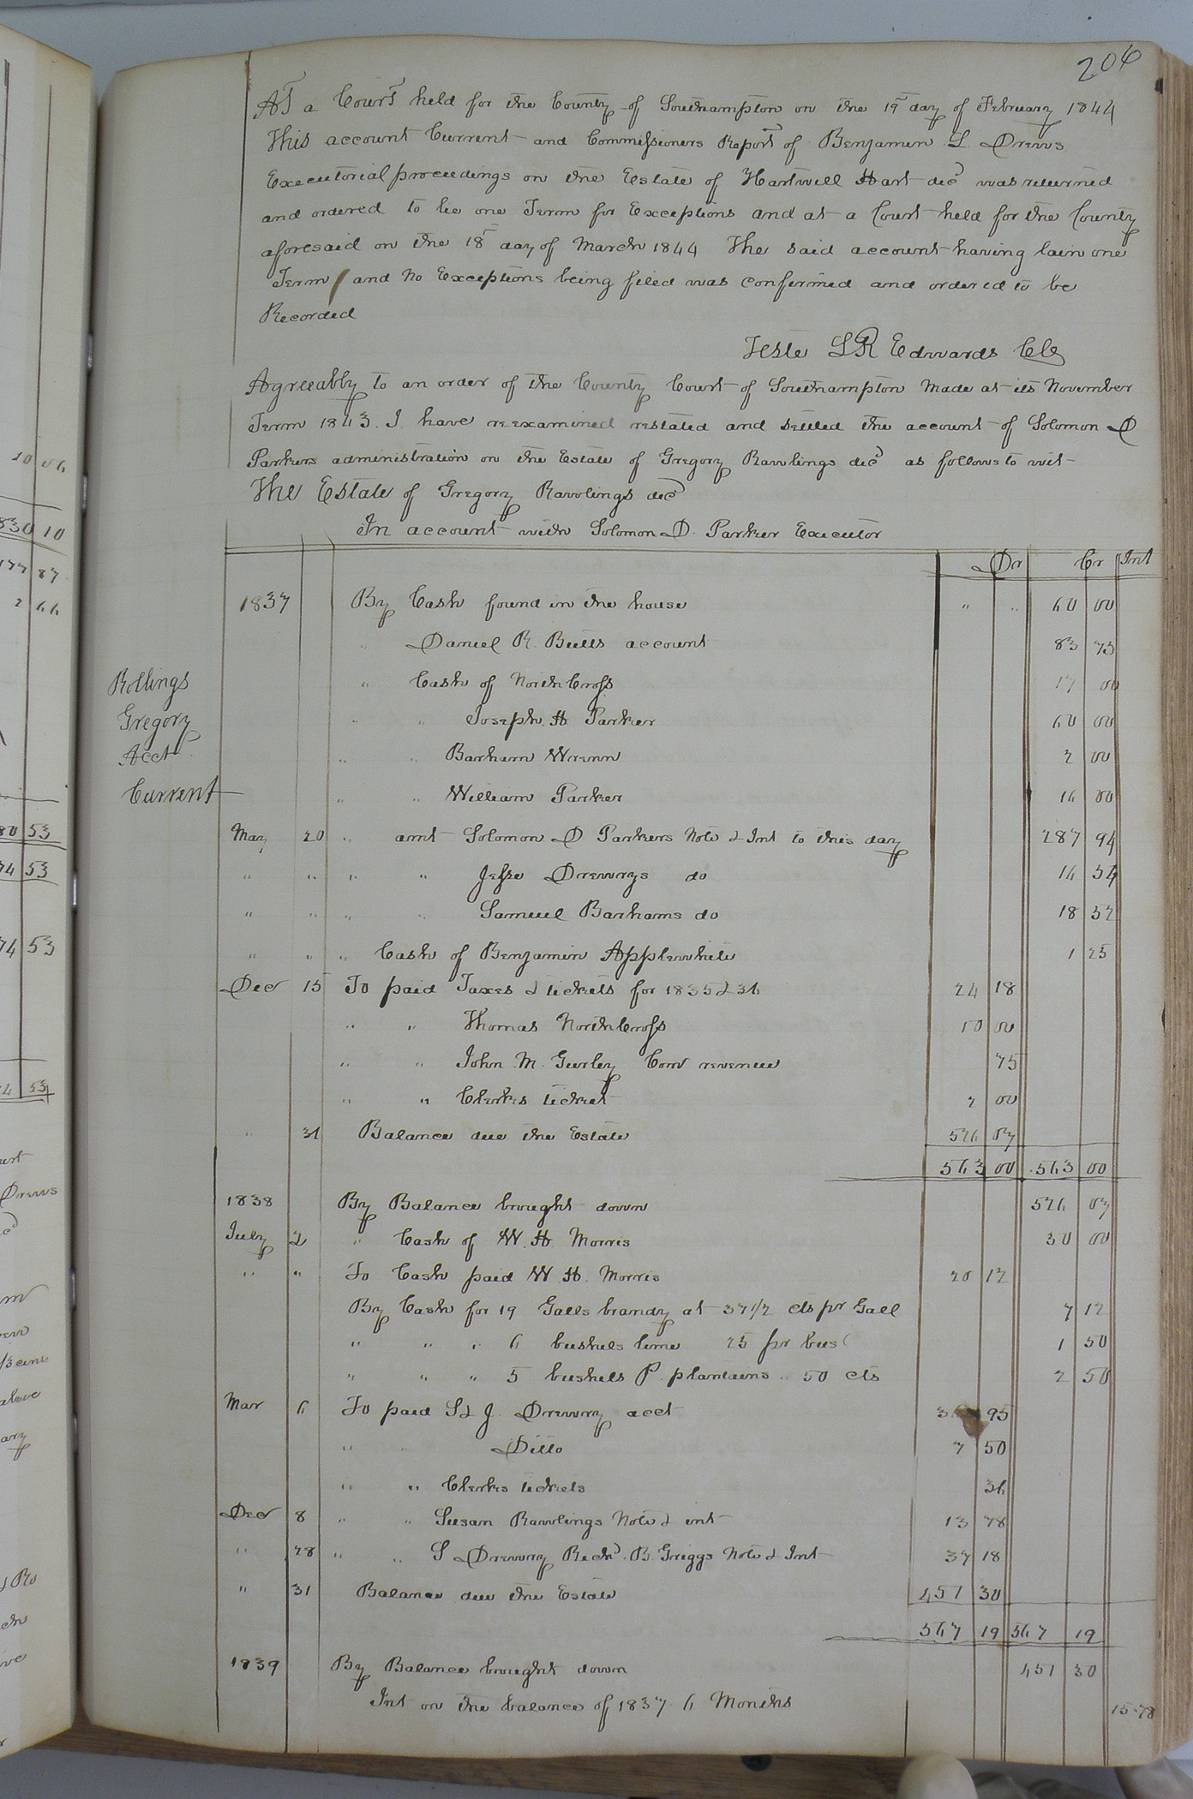 206
At a Court held for the County of Southampton on the 19th day of February 1844
This account Current and Commissioners Report of Benjamin L Drews
Executorial proceedings on the Estate of Hartwill Hart decd was returned
and ordered to lie one Term for Exceptions and at a Court held for the County
aforesaid on the 18th day of March 1844 The said account having lain one
Term and no Exceptions being filed was confirmed and ordered to be
Recorded
Teste L R Edwards Clk
Agreeably to an order of the County Court of Southampton made at its November
Term 1843. I have reexamined restated and settled the account of Solomon D
Parkers administration on the Estate of Gregory Rawlings decd as follows to wit
The Estate of Gregory Rawlings decd
In account with Solomon D. Parker Executor
Dr Cr Int
1837 By Cash found in the house " " 60 00
" Daniel R. Butts account 83 75
Rollings
Gregory
Acct
Current
" Cash of NorthCross 17 00
" " Joseph. H Parker 60 00
" " Barham Wrenn 2 00
" " William Parker 16 00
May 20 " amt Solomon D Parkers Note & Int to this day 287 94
" " " " Jesse Drewrys do 16 54
" " " " Samuel Barhams do 18 52
" " " Cash of Benjamin Applewhite 1 25
Decr 15 To paid Taxes & tickets for 1835 & 36 24 18
" " Thomas NorthCross 10 00
" " John. M. Gurley Comr revenue 75
" " Clerks ticket 2 00
" 31 Balance due the Estate 526 07
563 00 563 00
1838 By Balance brought down 526 07
July 2 " Cash of W. H. Morris 30 00
" " To Cash paid W H. Morris 20 12
By Cash for 19 Galls brandy at 37 1/2 cts pr Gall 7 12
" " " 6 bushels lime 25 pr bus 1 50
" " " 5 bushels P. plantains " 50 cts 2 50
Mar 6 To paid S & J. Drewry acct 95
" " Ditto 7 50
" " Clerks tickets 36
Decr 8 " " Susan Rawlings Note & int 13 78
" 28 " " S Drewry Recd. B. Griggs Note & Int 37 18
" 31 Balance due the Estate 451 30
567 19 567 19
1839 By Balance brought down 451 30
Int on the balance of 1837. 6 Months 15.78